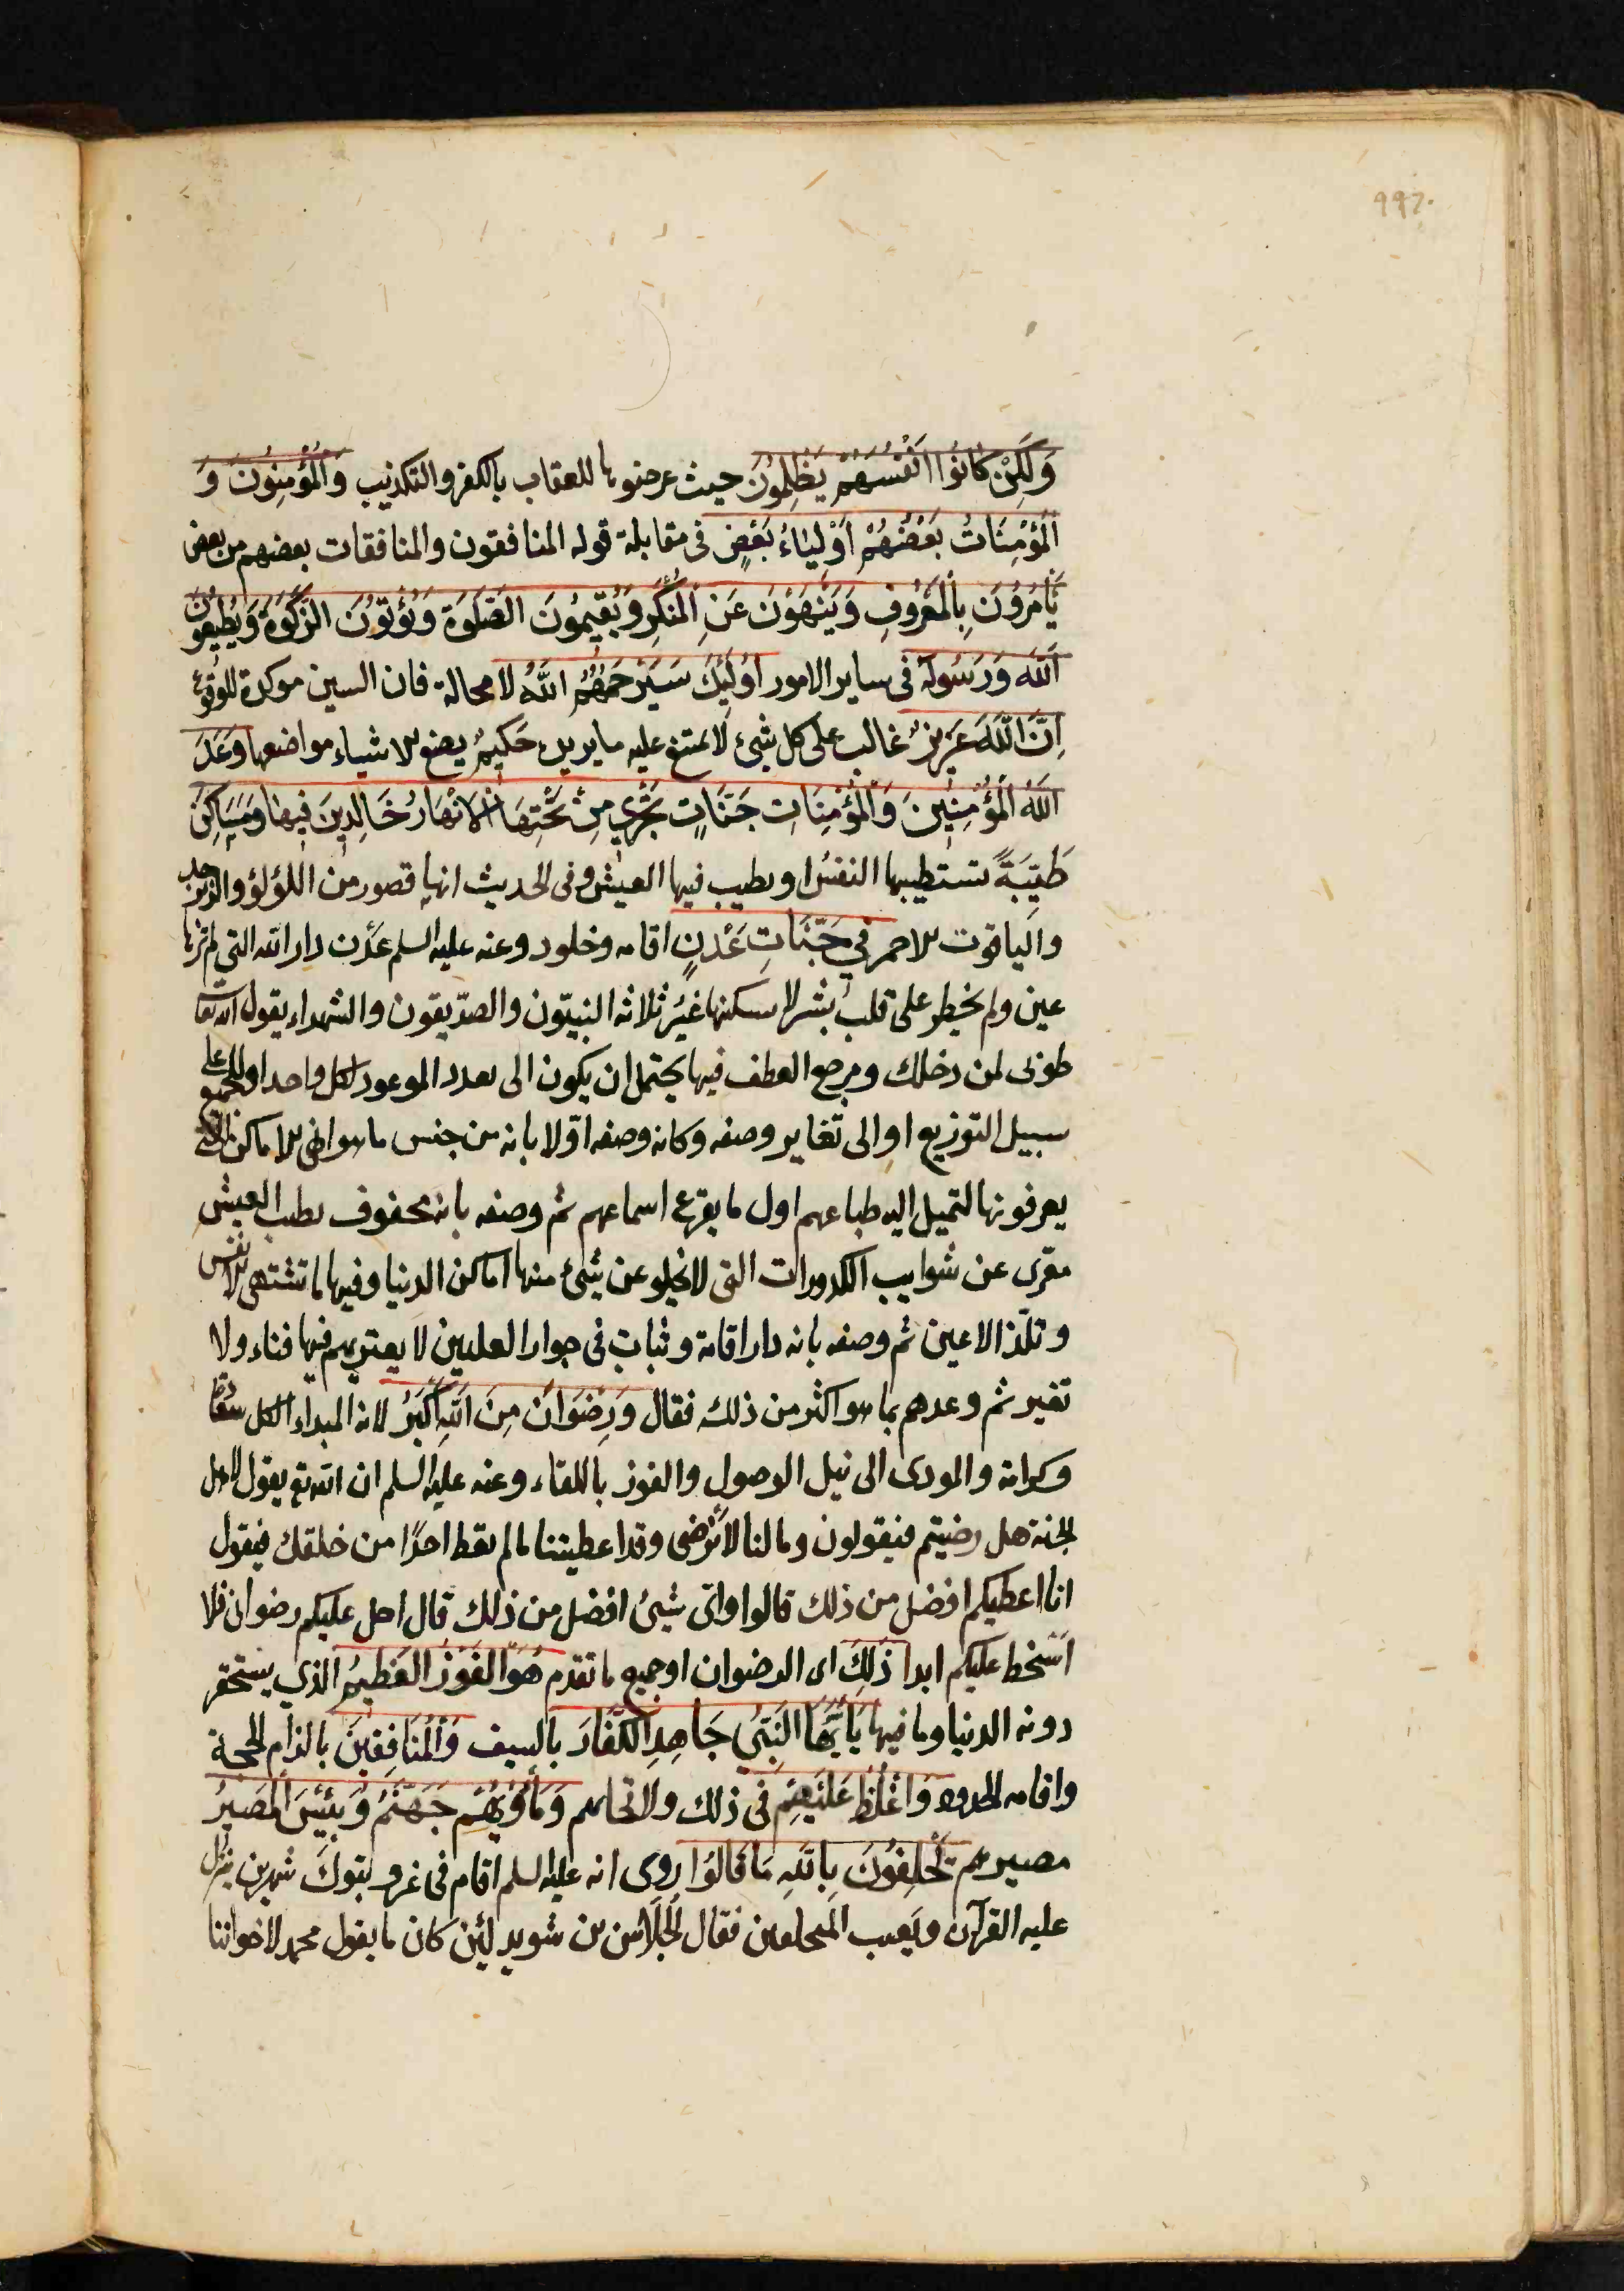 992
وَلَكِنْ كَانُوا اَنْفُسَهُمْ يَظْلِمُونَ حيث عرضوها للعقاب بالكفر والتكذيب وَالْمُؤْمِنُونَ وَ
الْمُؤْمِنَاتُ بَعْضُهُمْ اَوْلِيَاءُ بَعْضٍ فى مقابلة قوله المنافقون والمنافقات بعضهم من بعض
يَأْمُرُونَ بِالْمَعْرُوفِ وَيَنْهَوْنَ عَنِ الْمُنْكَرِ وَيُقِيمُونَ الصَّلَوةَ وَيُؤْتُونَ الزَّكَوةَ وَيُطِيعُونَ
اللهَ وَرَسُولَهُ فى ساير الامور اُولَئِكَ سَيَرْحَمُهُمُ اللهُ لا محالة فان السين موكدة للوقوع
اِنَّ اللهَ عَزِيزٌ غالب على كل شئ لا يمتنع عليه ما يريده حَكِيمٌ يضع الاشياء مواضعها وَعَدَ
اللهُ الْمُؤْمِنِينَ وَالْمُؤْمِنَاتِ جَنَّاتٍ تَجْرِي مِنْ تَحْتِهَا الْاَنْهَارُ خَالِدِينَ فِيهَا وَمَسَاكِنَ
طَيِّبَةً تستطيبها النفس او يطيب فيها العيش وفى الحديث انها قصور من اللؤلؤ والزبرجد
والياقوت الاحمر فِي جَنَّاتِ عَدْنٍ اقامه وخلود وعنه عليه السلم عَدْن دار الله التى لم ترها
عين ولم يخطر على قلب بشر لا يسكنها غيرُ ثلاثه النبيّون والصدّيقون والشهداء يقول الله تعا
طوبى لمن دخلك ومرجع العطف فيها يحتمل ان يكون الى تعدد الموعود لكل واحد او للجميع على
سبيل التوزيع او الى تغاير وصفه وكانه وصفه اوّلا بانه من جنس ما هو ابهى الاماكن التى
يعرفونها لتميل اليه طباعهم اول ما يقرع اسماعهم ثم وصفه بانه محفوف بطيب العيش
معرّى عن شوايب الكدورات التى لا تخلو عن شئ منها اماكن الدنيا وفيها ما تشتهى الانفس
وتلذ الاعين ثم وصفه بانه دار اقامة وثبات فى جوار العليين لا يعتريهم فيها فناء ولا
تغير ثم وعدهم بما هو اكثر من ذلك فقال وَرِضْوَانٌ مِنَ اللهِ اَكْبَرُ لانه المبداء لكل سعادة
وكرامة والمودى الى نيل الوصول والفوز باللقاء وعنه عليه السلم ان الله تع يقول لاهل
الجنة هل رضيتم فيقولون وما لنا لا نرضى وقد اعطيتنا ما لم تعط احدًا من خلقك فيقول
انا اعطيكم افضل من ذلك قالوا واىّ شئ افضل من ذلك قال احل عليكم رضوان فلا
اسخط عليكم ابدا ذَلِكَ اى الرضوان او جميع ما تقدم هُوَ الْفَوْزُ الْعَظِيمُ الذي يستحقر
دونه الدنيا وما فيها يَاأَيُّهَا النَّبِيُّ جَاهِدِ الْكُفَّارَ بالسيف وَالْمُنَافِقِينَ بالزام الحجة
واقامه الحدود وَاغْلُظْ عَلَيْهِمْ فى ذلك ولا تحابهم وَمَأْوَيهُمْ جَهَنَّمُ وَبِئْسَ الْمَصِيرُ
مصيرهم يَحْلِفُونَ بِاللهِ مَا قَالُوا روى انه عليه السلم اقام فى غزوة تبوك شهرين ينزل
عليه القرآن ويعيب المتخلفين فقال الجُلَاس بن سويد لئن كان ما يقول محمد لاخواننا